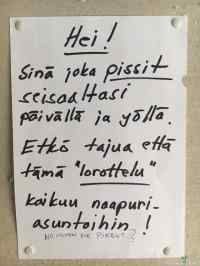 Hei!
Sinä joka pissit
seisaaltasi
päivällä ja yöllä.
Etkö tajua että
tämä "lorottelu"
kaikuu naapuri-
asuntoihin!